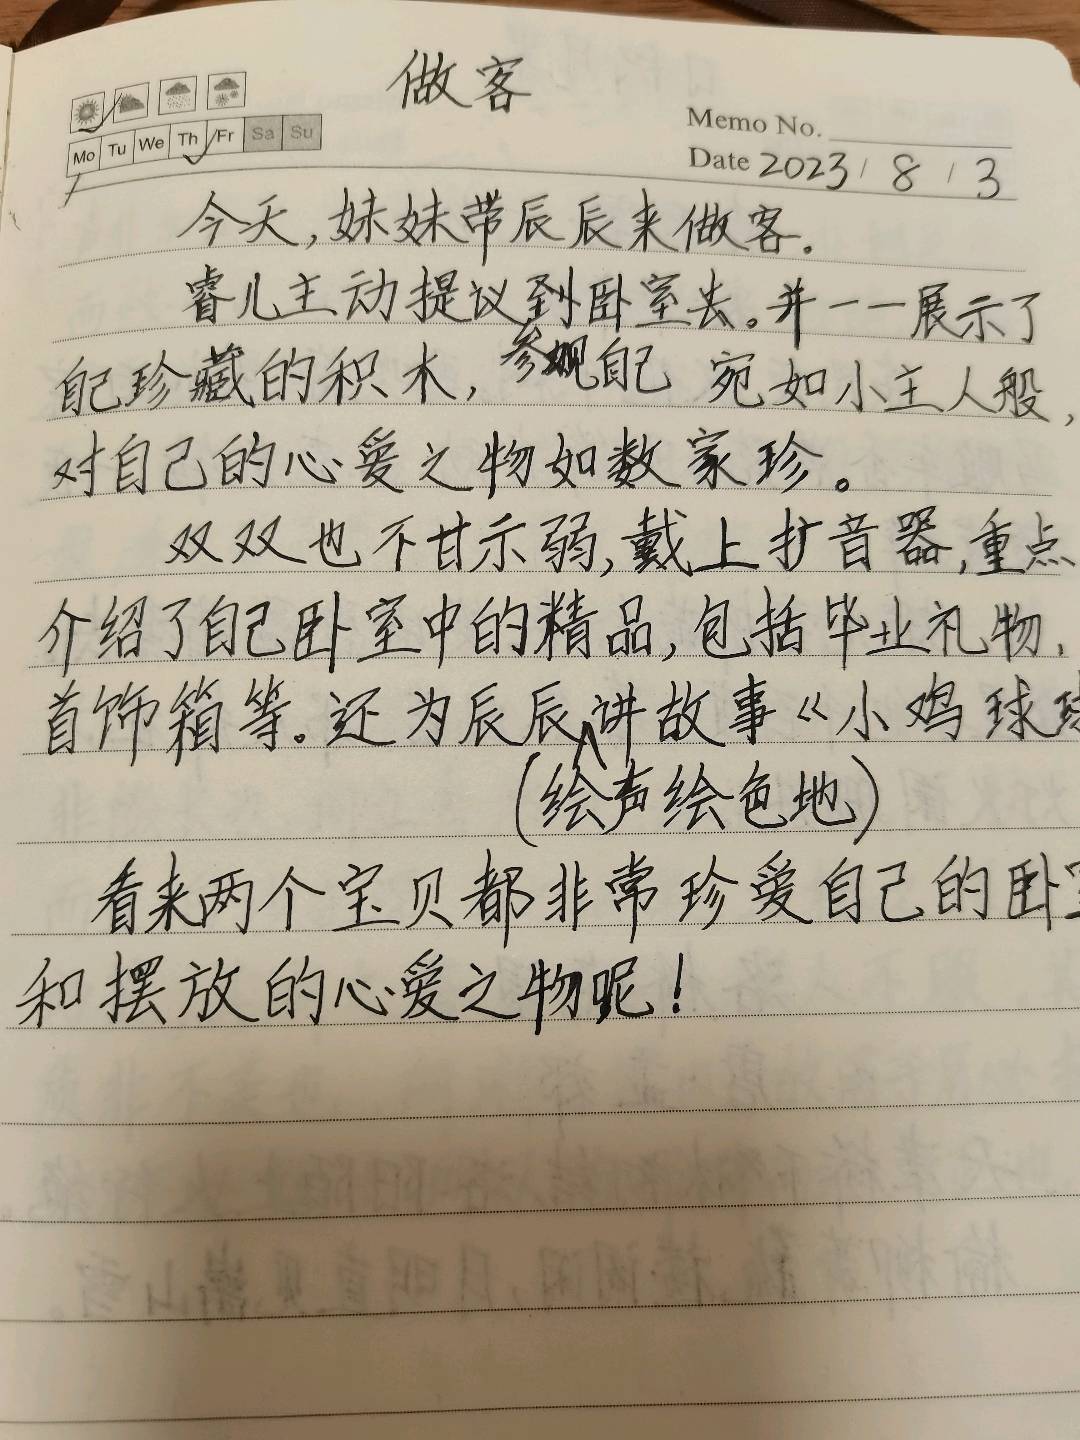 做客
Memo No.
Mo Tu We Th Fr Sa Su
Date 2023 / 8 / 3
今天,妹妹带辰辰来做客.
睿儿主动提议到卧室去。并一一展示了
自己珍藏的积木, 参观自己 宛如小主人般,
对自己的心爱之物如数家珍。
双双也不甘示弱,戴上扩音器,重点
介绍了自己卧室中的精品,包括毕业礼物.
首饰箱等.还为辰辰讲故事《小鸡球球
(绘声绘色地)
看来两个宝贝都非常珍爱自己的卧室
和摆放的心爱之物呢!